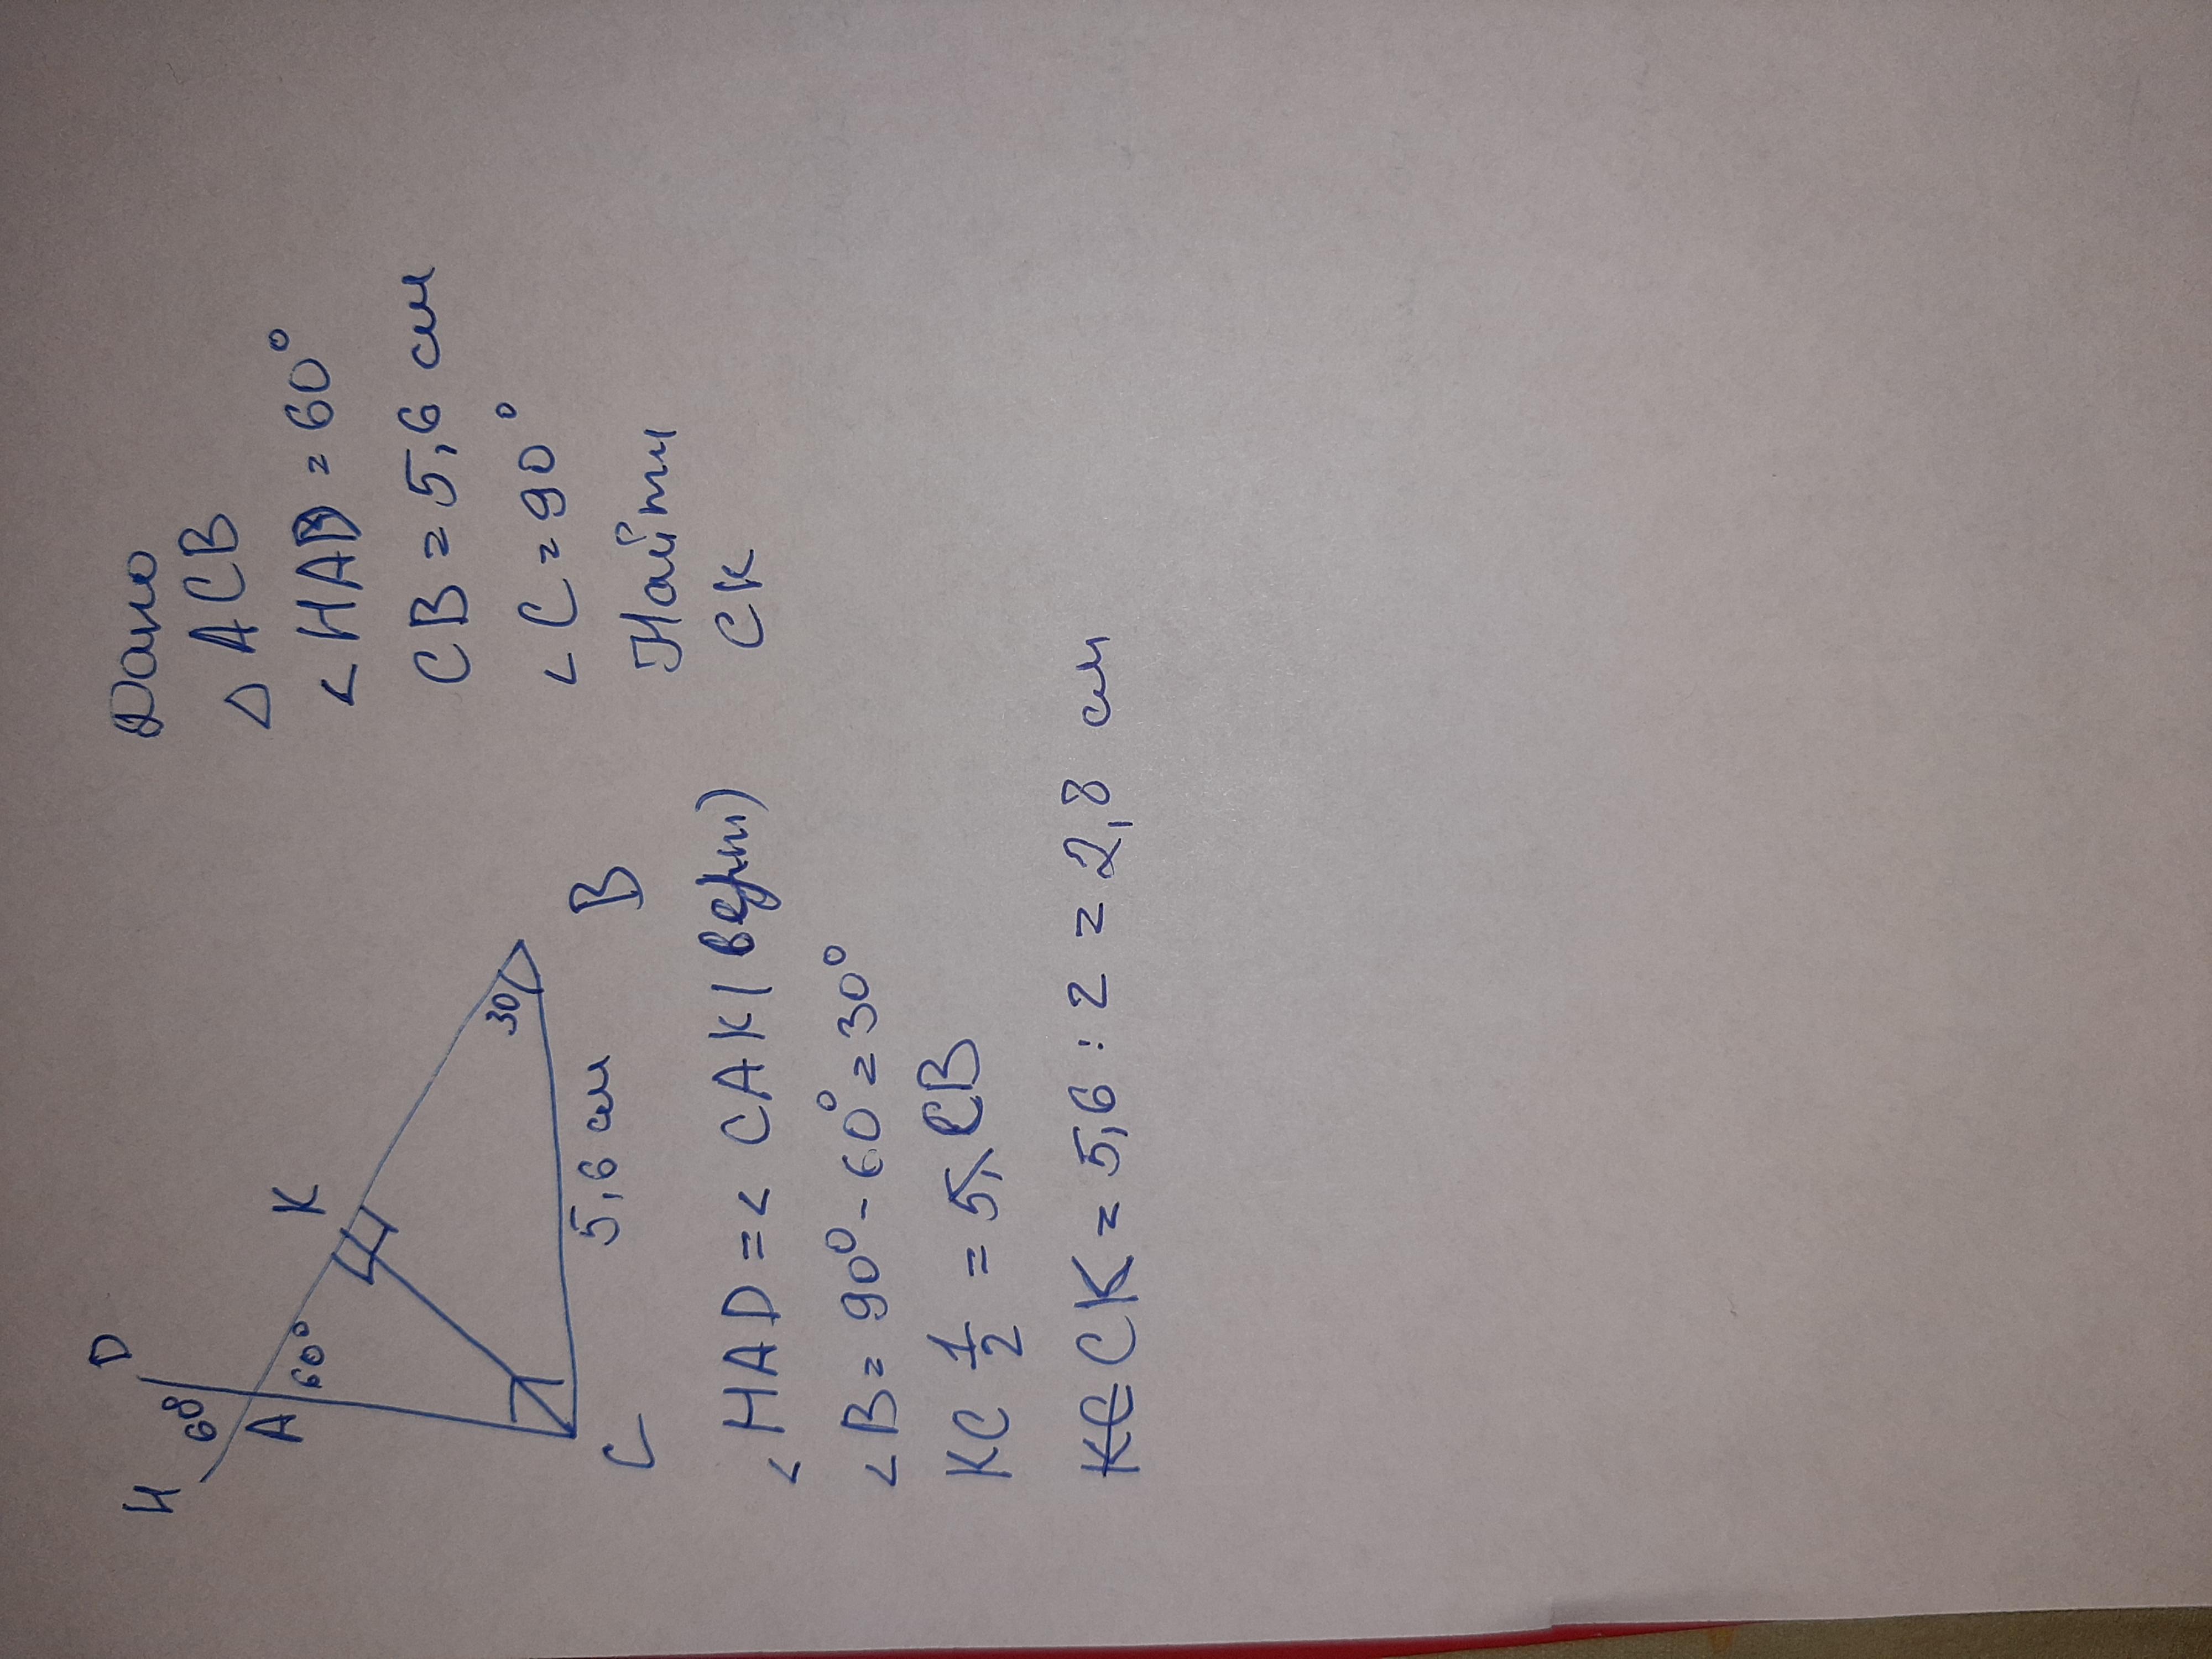 Дано
△ ACB
< HAD = 60°
CB = 5,6 см
< C = 90°
Найти
CK
H
D
60
A
60°
K
30
B
C
5,6 см
< HAD = < CAK (верт)
< B = 90° - 60° = 30°
KC 1/2 = CB
CK = 5,6 : 2 = 2,8 см